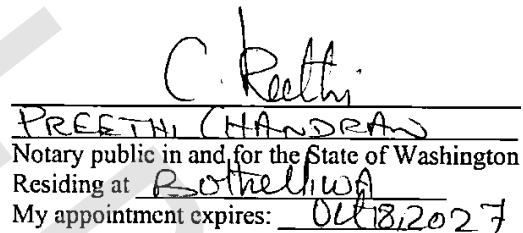 C. Reethi
PREETHI CHANDRAN
Notary public in and for the State of Washington
Residing at Bothell, WA
My appointment expires: Oct 18, 2027